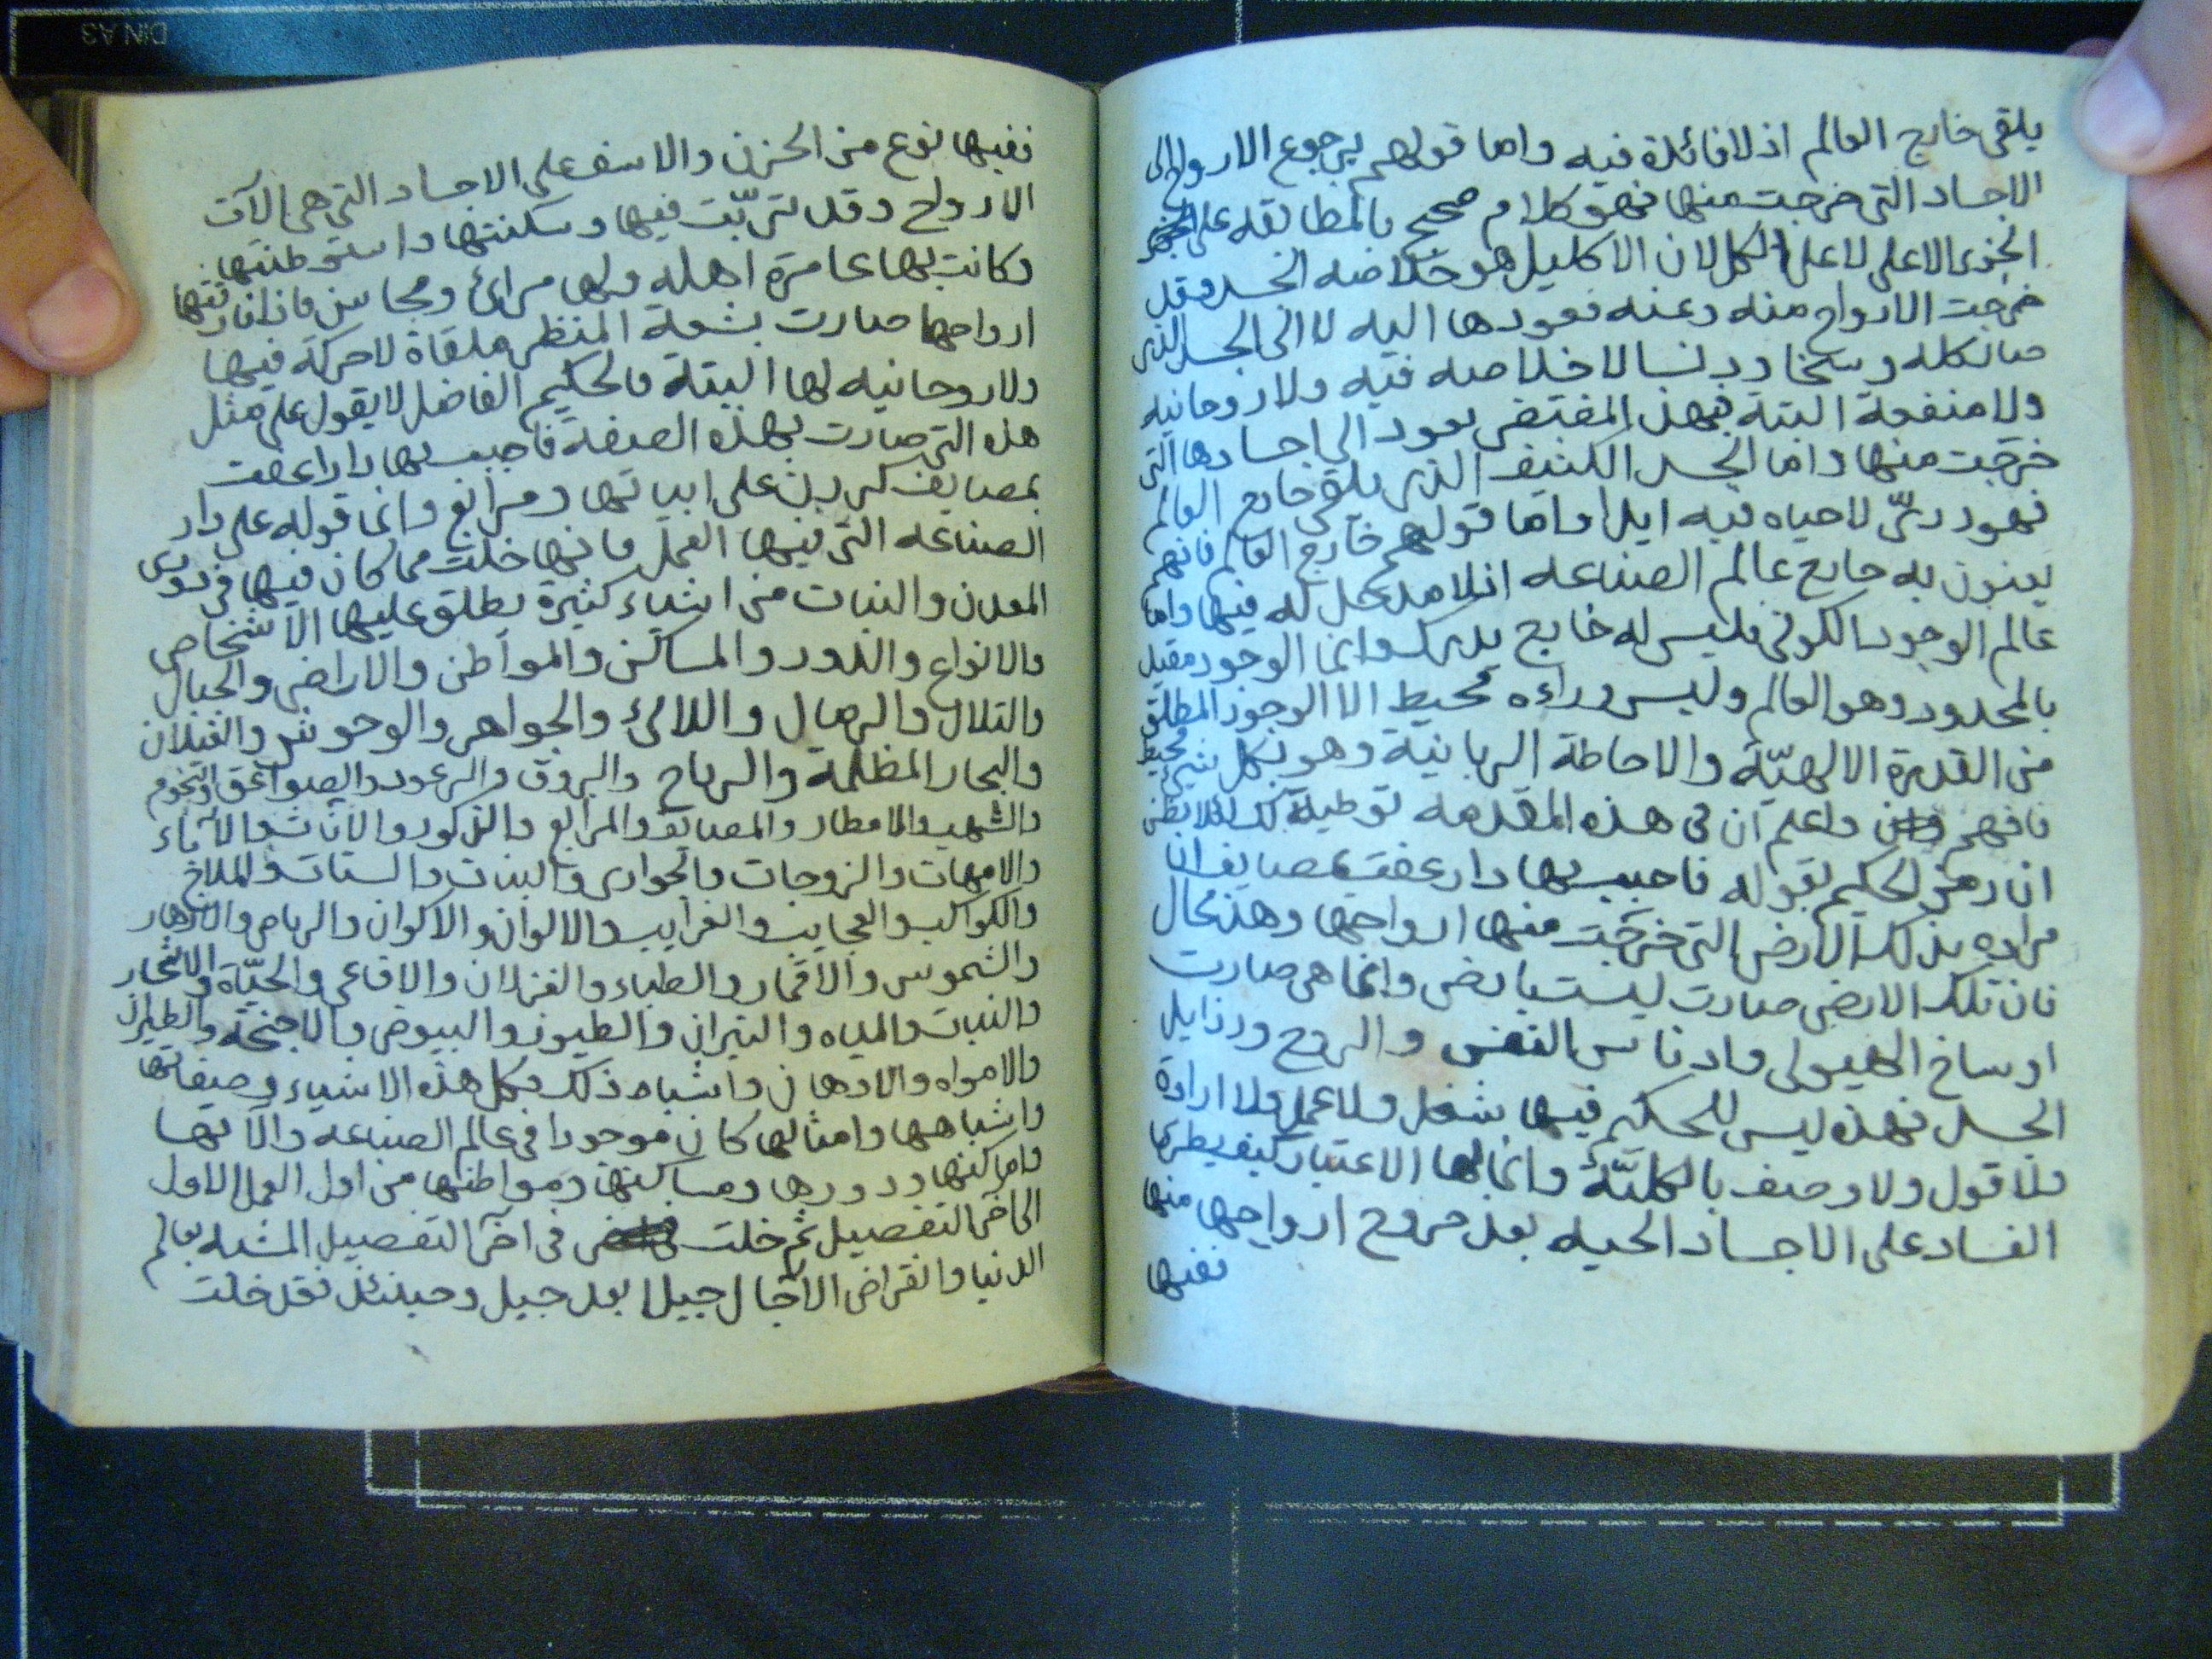 يلقى خارج العالم اذ لا فائدة فيه واما قولهم برجوع الارواح الى
الاجساد التى خرجت منها فهو كلام صحيح بالمطابقه على الجزء
الجزى الاعلى لا على الكل لان الاكليل هو خلاصه الجسد وقد
خرجت الارواح منه وعنه فعودها اليه لا الى الجسد الذى
صار كله وسخا ودنسا لا خلاصه فيه ولا روحانيه
ولا منفعة البتة فبهذا المقتضى تعود الى اجسادها التى
خرجت منها واما الجسد الكثيف الذى يلقى خارج العالم
فهو ردىّ لا حياه فيه ابدا واما قولهم خارج العالم فانهم
يعنون به خارج عالم الصناعه اذ لا مدخل له فيها واما
عالم الوجود الكونى فليس له خارج يدرك وانما الوجود مقيد
بالمحدود وهو العالم وليس وراءه محيط الا الوجود المطلق
من القدرة الالهيّة والاحاطة الربانية وهو بكل شىء محيط
فافهم واعلم ان فى هذه المقدمه توطية لك لئلا تظن
ان رمز الحكيم بقوله فاحبب بها دار عفت بمصايف ان
مراده بذلك الارض التى خرجت منها ارواحها وهذا محال
فان تلك الارض صارت ليست بارض وانما هى صارت
اوساخ الهيولى وادناس النفس والروح ورذايل
الجسد فهذه ليس للحكيم فيها شغل ولا عمل ولا ارادة
ولا قول ولا وصف بالكليّة وانما لها الاعتبار كيف يطرا
الفساد على الاجساد الحيه بعد خروج ارواحها منها
ففيها
ففيها نوع من الحزن والاسف على الاجساد التى هى الآت
الارواح وقد تربّت فيها وسكنتها واستوطنتها
وكانت بها عامرة اهله ولها مرائ ومحاسن فاذا فارقتها
ارواحها صارت بشعة المنظر ملقاة لا حركة فيها
ولا روحانيه لها البتة فالحكيم الفاضل لا يقول على مثل
هذه التى صارت بهذه الصفة فاحبب بها دارا عفت
بمصايف على ابياتها ومرابع وانما قوله على دار
الصناعه التى فيها العمل فانها خلت مما كان فيها فى
المعدن والنبات من اشياء كثيرة يطلق عليها الاشخاص
والانواع والدور والمساكن والمواطن والاراضى والجبال
والتلال والرمال واللالئ والجواهر والوحوش والغيلان
والبحار المظلمة والرياح والبروق والرعود والصواعق والنجوم
والشهب والامطار والمصايف والمرابع والذكور والاناث والآباء
والامهات والزوجات والجوارى والبنات والستات والملاح
والكواكب والعجايب والغرايب والالوان والاكوان والرياض والازهار
والشموس والاقمار والظباء والغزلان والافاعى والحيّاة والاشجار
والنبات والمياه والنيران والطيور والبيوض والاجنحة والطيران
والامواه والادهان واشباه ذلك فكل هذه الاشياء وصفاتها
واشباهها وامثالها كان موجودا فى عالم الصناعه والآتها
واماكنها ودورها ومساكنها ومواطنها من اول العمل الاول
الى اخر التفصيل ثم خلت فى اخر التفصيل المشبه بعالم
الدنيا وانقراض الآجال جيلا بعد جيل وحينئذ فقد خلت
DIN A3